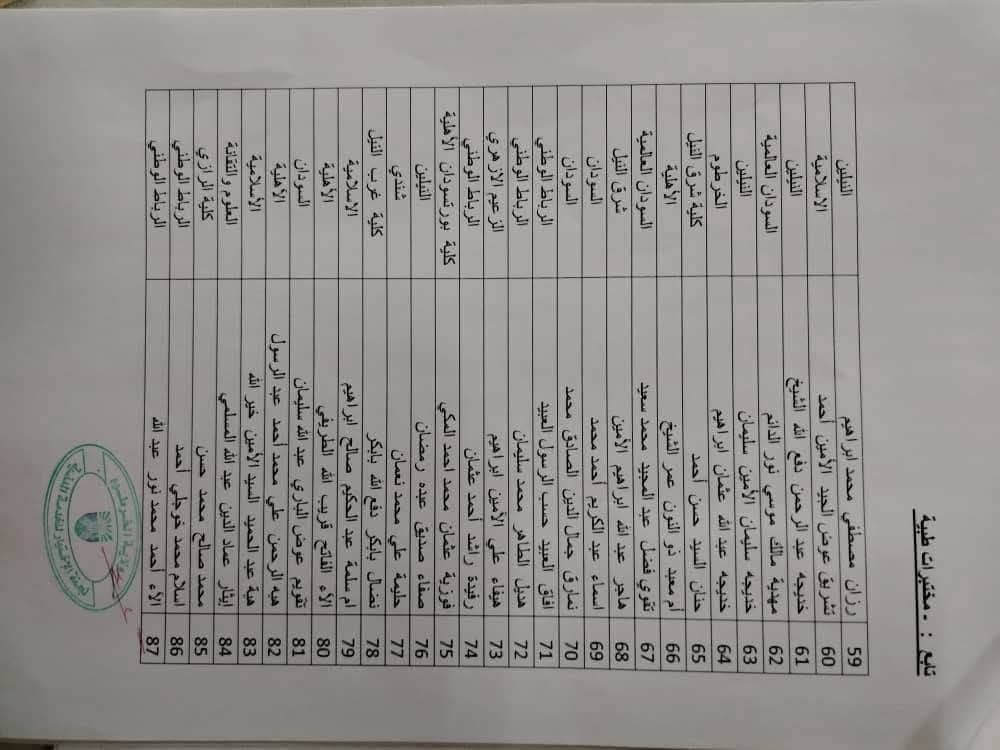 تابع : - مختبرات طبية
59 رزان مصطفي محمد ابراهيم النيلين
60 تشريق عوض الجيد الأمين أحمد الاسلامية
61 خديجه عبد الرحمن دفع الله الشيخ النيلين
62 مهدية مالك موسي نور الدائم السودان العالمية
63 خديجه سليمان الأمين سليمان النيلين
64 خديجه عبد الله عثمان ابراهيم الخرطوم
65 حنان السيد حسن أحمد كلية شرق النيل
66 أم معبد ذو النون عمر الشيخ الأهلية
67 تقوي فضل عبد المجيد محمد سعيد السودان العالمية
68 هاجر عبد الله ابراهيم الأمين شرق النيل
69 اسماء عبد الكريم أحمد محمد السودان
70 نمارق جمال الدين الصادق محمد السودان
71 افاق العبيد حسب الرسول العبيد الرباط الوطني
72 هديل الطاهر محمد سليمان الرباط الوطني
73 هيفاء علي الأمين ابراهيم الزعيم الازهري
74 رفيدة راشد أحمد عثمان الرباط الوطني
75 فوزية عثمان محمد احمد المكي كلية بورتسودان الأهلية
76 صفاء صديق عبده رمضان النيلين
77 حليمة علي محمد نعمان شندي
78 نضال بابكر دفع الله بابكر كلية غرب النيل
79 ام سلمة عبد الحكيم صالح ابراهيم الاسلامية
80 الاء الفاتح قريب الله الطريفي الأهلية
81 تقويم عوض الباري عبد الله سليمان السودان
82 هبه الرحمن علي محمد أحمد عبد الرسول الأهلية
83 هبة عبد الحميد السيد الأمين خير الله الأسلامية
84 إيثار عماد الدين عبد الله المسلمي العلوم والتقانة
85 محمد صالح محمد حسن كلية الرازي
86 اسلام محمد خوجلي أحمد الرباط الوطني
87 الاء أحمد محمد نور عبد الله الرباط الوطني